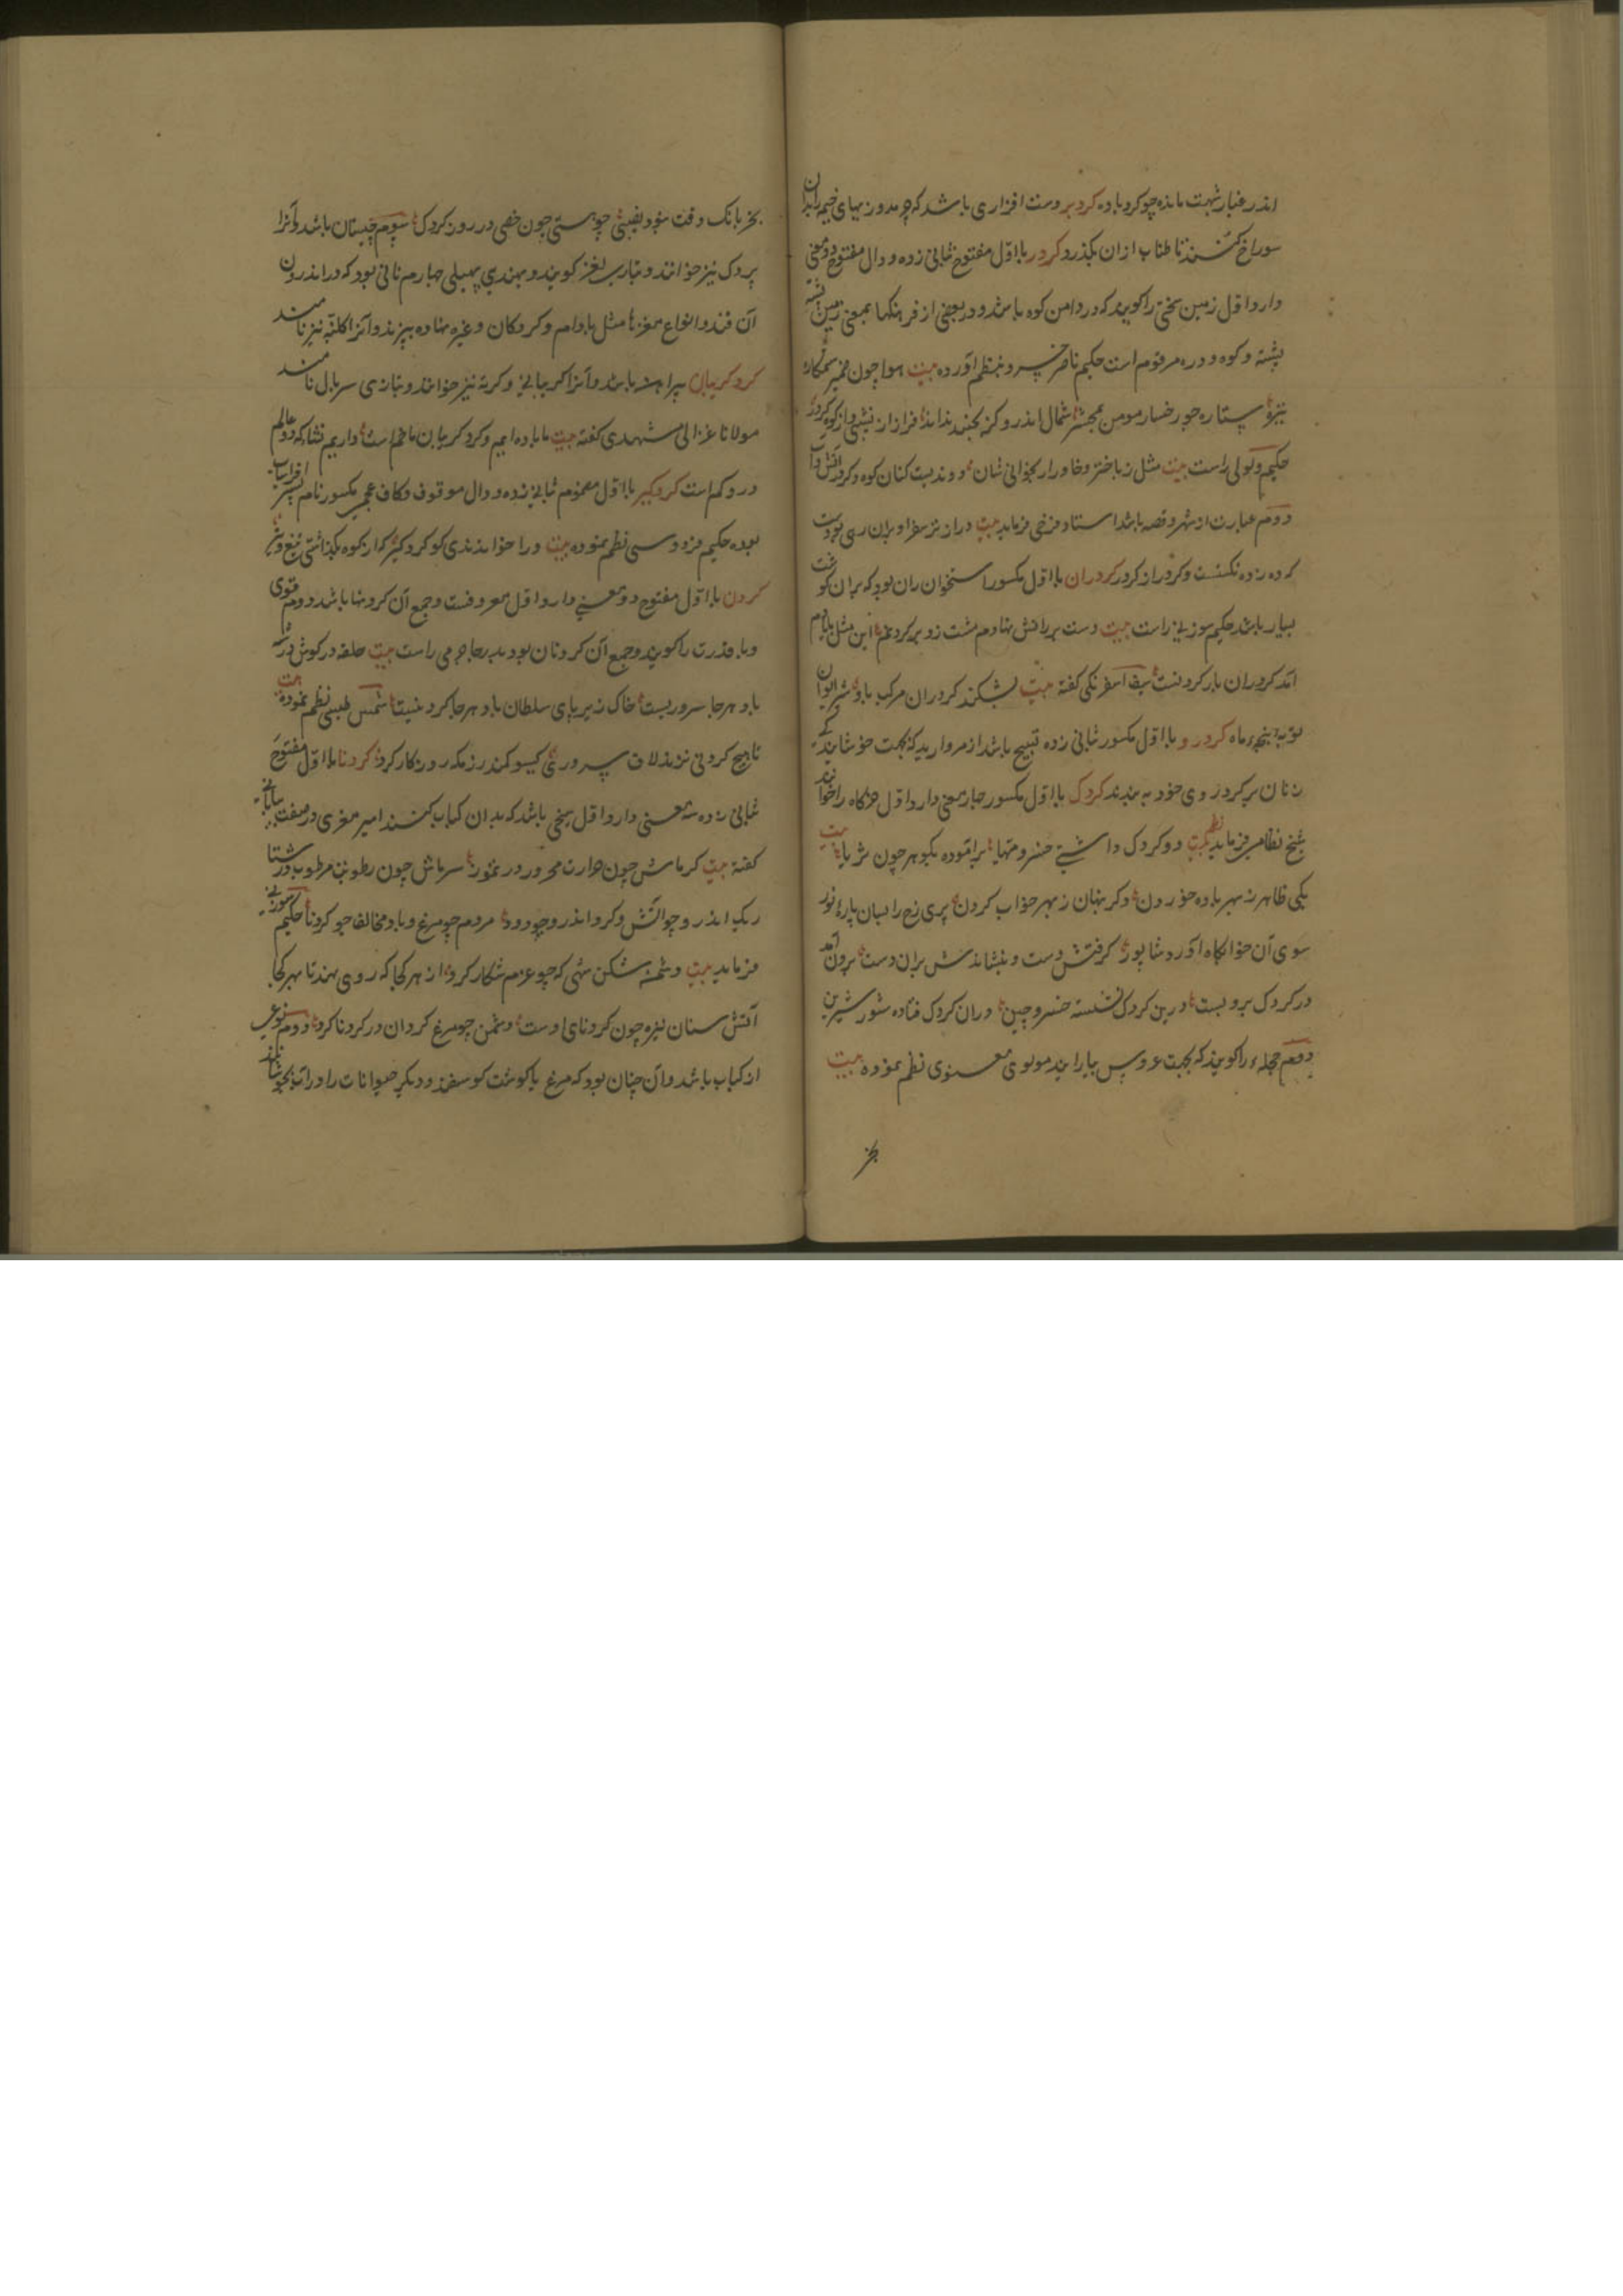 اندر غبار شهت مانده چو کرد باده کردبر دست افزاری باشد که چو بدوزیهای خیمه را بدان
سوراخ کنند تا طناب ازان بکذرد کردر بااول مفتوح بثانی زده و دال مفتوح دو معنی
دارد اول زمین سختی را کویند که در دامن کوه باشد و در بعضی از فرهنکها بمعنی زمین پشته
پشته و کوه و دره مرقوم است حکیم ناصر خسرو بنظم آورده بیت هوا چون
تیره ستاره چو رخسار مومن بمحشر شمال اندرو کر بجنبد نداند فراز از نشیب و از کوه کردر
حکیم راست بیت مثل زباختر و خاور ار بخوانی شان کنان کوه و کردر
دوم عبارت از شهر و قصبه باشد استاد فرخی فرماید بیت دراز تر سفر او بران رهی بودست
که ده زده نکسست و کردر از کردر کردران بااول مکسور استخوان ران بود که بران کوشت
بسیار باشد حکیم سوزنی راست بیت دست بر رانش نهادم مشت زد بر کردنم این مثل یادم
آمد کردران با کردنست سیف اسفرنکی کفته بیت بشکند کردران مرکب باد شیر ایوان
تو بپنجه ماه کردرو بااول مکسور بثانی زده تسبیح باشد از مروارید که بجهت خوشایندکی
زنان بر کرد روی خود به بندند کردک بااول مکسور چهار معنی دارد اول خرکاه را خوانند
شیخ نظامی نظم فرماید بیت دو کردک داشتی خسرو مهیا برآموده بکوهر چون ثریا بیت
یکی ظاهر ز بهر باده خوردن دکر پنهان ز بهر خواب کردن پری رخ را بسان پارهٔ نور
سوی آن خوابکاه آورد شاپور کرفتش دست و بنشاندش بران دست برون آمد
در کردک برو بست درین کردک نشسته خسرو چین دران کردک فتاده شور شیرین
دوم حجله را کویند که بجهت عروس بیارایند مولوی معنوی نظم نموده بیت
بخر
بخر بانک وقت چو هستی چون خصی در روز کردک سوم چیستان باشد و آنرا
پردک نیز خوانند و بتازی لغز کویند و بهندی پهیلی چهارم نانی بود که در اندرون
آن قند و انواع مغزها مثل بادام و کردکان و غیره نهاده بپزند و آنرا کلنبه نیز نامند
کردکریبان پیراهن باشد و آنرا کریبانی و کرته نیز خوانند و بتازی سربال نامند
مولانا غزالی مشهدی کفته بیت ما باده ایم و کردکریبان ما خم است داریم نشاه که دو عالم
درو کم است کردکیر بااول مضموم بثانی زده و دال موقوف و کاف عجمی مکسور نام پسر افراسیاب
بوده حکیم فردوسی نظم نموده بیت ورا خواندندی کو کردکیر که از کوه بکذاشتی تیغ و تیر
کردن بااول مفتوح دو معنی دارد اول معروفست و جمع آن کردنها باشد دوم قوی
و با قدرت را کویند و جمع آن کردنان بود بدر جاجرمی راست بیت حلقه در کوش درت
باد هر جا سروریست خاک زیر پای سلطان باد هر جا کردنیست شمس طبسی نظم نموده بیت
تا هیچ کردنی نزند لاف سروری کیسو کمند رزمکه روزکار کرد کردنا بااول مفتوح
بثانی زده سه معنی دارد اول سیخی باشد که بدان کباب کنند امیر معزی در صفت بیابانی
کفته بیت کرماش چون حرارت محرور در تموز سرماش چون رطوبت مرطوب در شتا
ریک اندرو چو آتش و کرد اندرو چو دود مردم چو مرغ و باد مخالف چو کردنا حکیم سوزنی
فرماید بیت دشمن شکن شهی که چو عزم شکار کرد از هر کجا که روی نهد تا بهر کجا
آتش سنان نیزه چون کردنای اوست دشمن چو مرغ کردان در کردنا کرد دوم نوعی
از کباب باشد و آن چنان بود که مرغ یا کوشت کوسفند و دیکر حیوانات را در آب بجوشانند